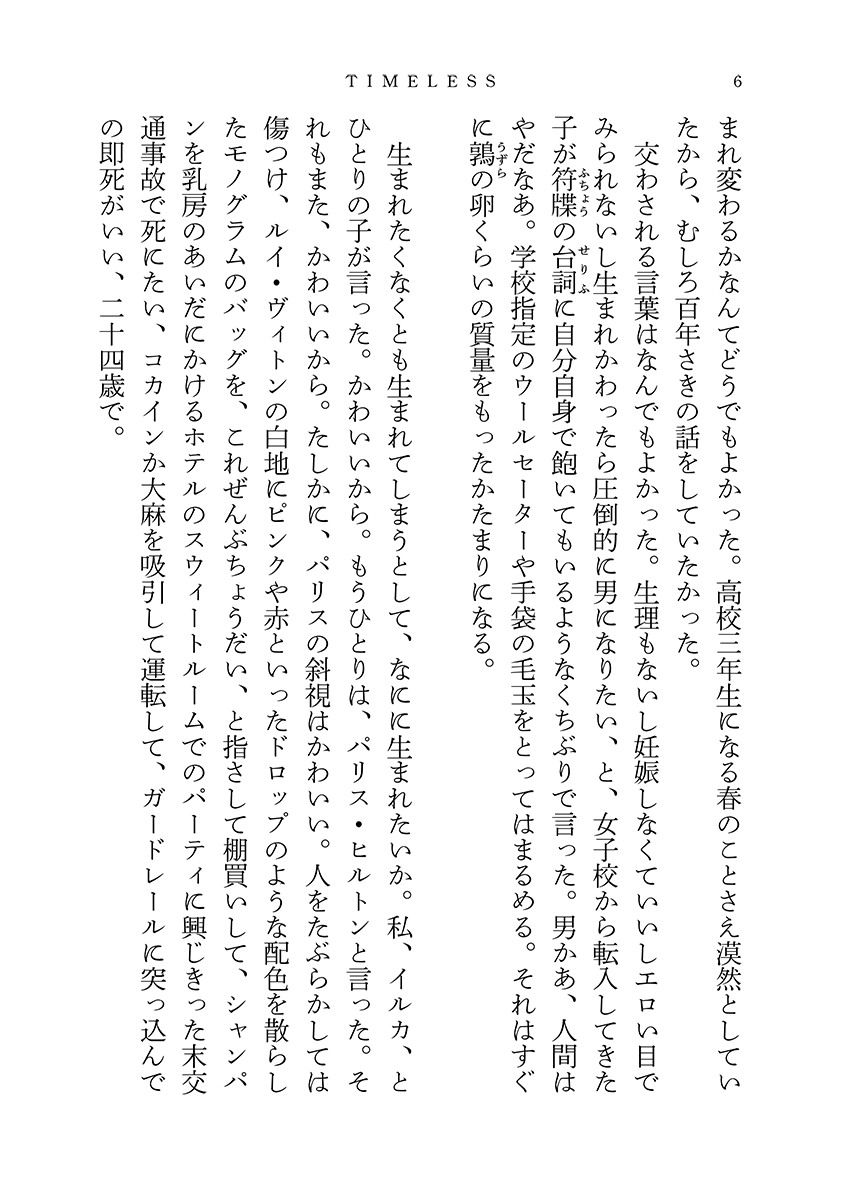 TIMELESS
6
まれ変わるかなんてどうでもよかった。高校三年生になる春のことさえ漠然としてい
たから、むしろ百年さきの話をしていたかった。
交わされる言葉はなんでもよかった。生理もないし妊娠しなくていいしエロい目で
みられないし生まれかわったら圧倒的に男になりたい、と、女子校から転入してきた
子が符牒の台詞に自分自身で飽いてもいるようなくちぶりで言った。男かあ、人間は
ふちょう
せりふ
やだなあ。学校指定のウールセーターや手袋の毛玉をとってはまるめる。それはすぐ
に鶉の卵くらいの質量をもったかたまりになる。
うずら
生まれたくなくとも生まれてしまうとして、なにに生まれたいか。私、イルカ、と
ひとりの子が言った。かわいいから。もうひとりは、パリス・ヒルトンと言った。そ
れもまた、かわいいから。たしかに、パリスの斜視はかわいい。人をたぶらかしては
傷つけ、ルイ・ヴィトンの白地にピンクや赤といったドロップのような配色を散らし
たモノグラムのバッグを、これぜんぶちょうだい、と指さして棚買いして、シャンパ
ンを乳房のあいだにかけるホテルのスウィートルームでのパーティに興じきった末交
通事故で死にたい、コカインか大麻を吸引して運転して、ガードレールに突っ込んで
の即死がいい、二十四歳で。